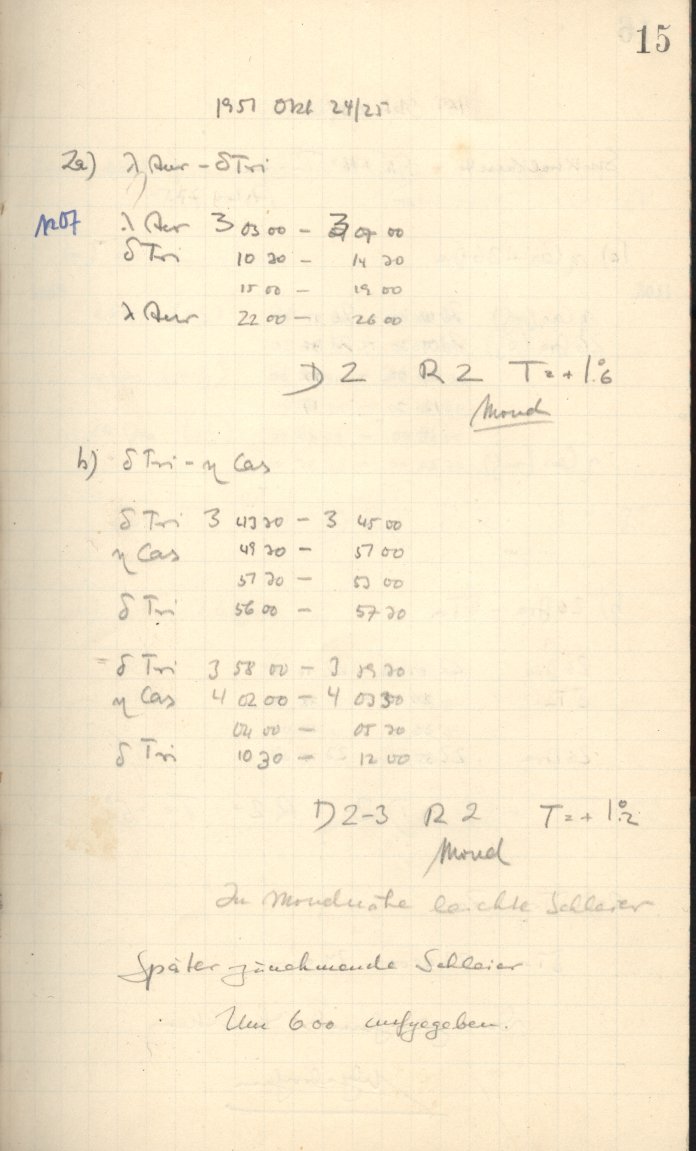 15
1951 Okt 24/25
2a) λ Aur - δ Tri
1207 λ Aur 3 03 00 - 3 07 00
δ Tri 10 20 - 14 20
15 00 - 19 00
λ Aur 22 00 - 26 00
D 2 R 2 T = + 1°.6
Mond
b) δ Tri - η Cas
δ Tri 3 43 30 - 3 45 00
η Cas 49 30 - 51 00
51 30 - 53 00
δ Tri 56 00 - 57 30
δ Tri 3 58 00 - 3 59 30
η Cas 4 02 00 - 4 03 30
04 00 - 05 30
δ Tri 10 30 - 12 00
D 2-3 R 2 T = + 1°.2
Mond
In Mondnähe leichte Schleier
Später zunehmende Schleier
Um 6 00 aufgegeben.